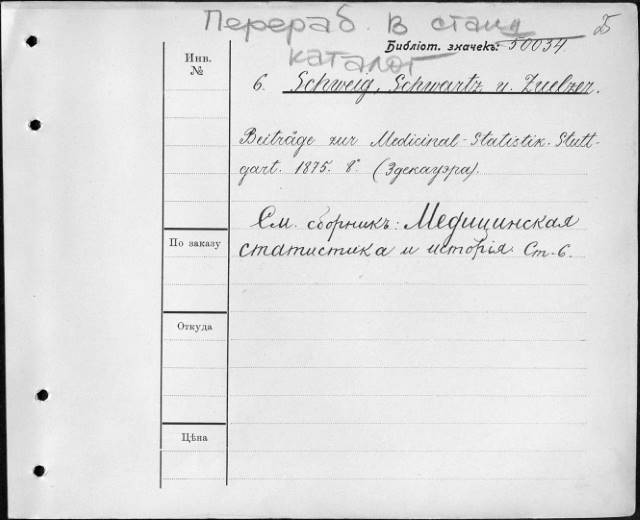 Перераб. в станд
каталог
Б
Библіот. значекъ: 50034.
Инв.
№
6. Schweig, Schwartz u. Zuelzer.
Beiträge zur Medicinal-Statistik. Stutt-
gart. 1875. 8° (Эдекауэра).
См. сборникъ: Медицинская
статистика и исторія. Ст. 6.
По заказу
Откуда
Цѣна